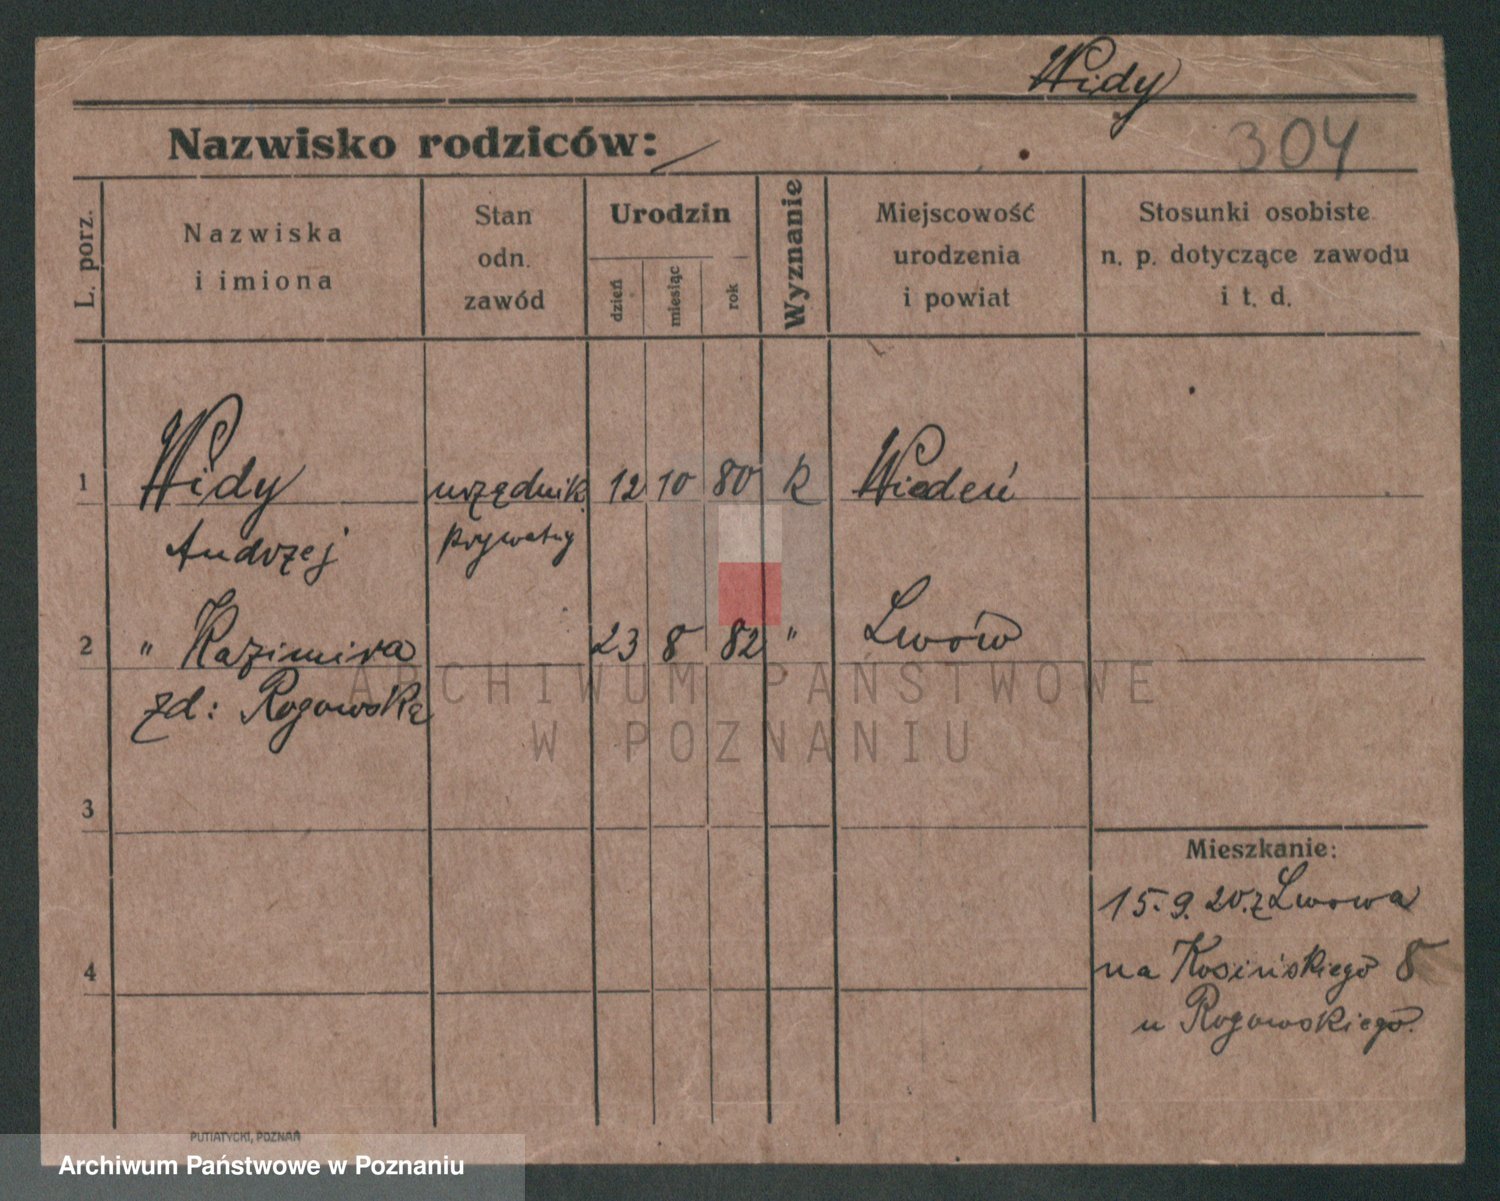 Widy
Nazwisko rodziców:
304
L. porz.
Nazwiska
i imiona
Stan
odn.
zawód
Urodzin
dzień
miesiąc
rok
Wyznanie
Miejscowość
urodzenia
i powiat
Stosunki osobiste
n. p. dotyczące zawodu
i t. d.
1 Widy urzędnik 12 10 80 k Wiedeń
Andrzej prywatny
2 " Kazimira 23 8 82 " Lwów
zd: Rogowska
ARCHIWUM PAŃSTWOWE
W POZNANIU
3
Mieszkanie:
15.9.20. z Lwowa
4 na Kosińskiego 8
u Rogowskiego.
PUTIATYCKI, POZNAŃ
Archiwum Państwowe w Poznaniu